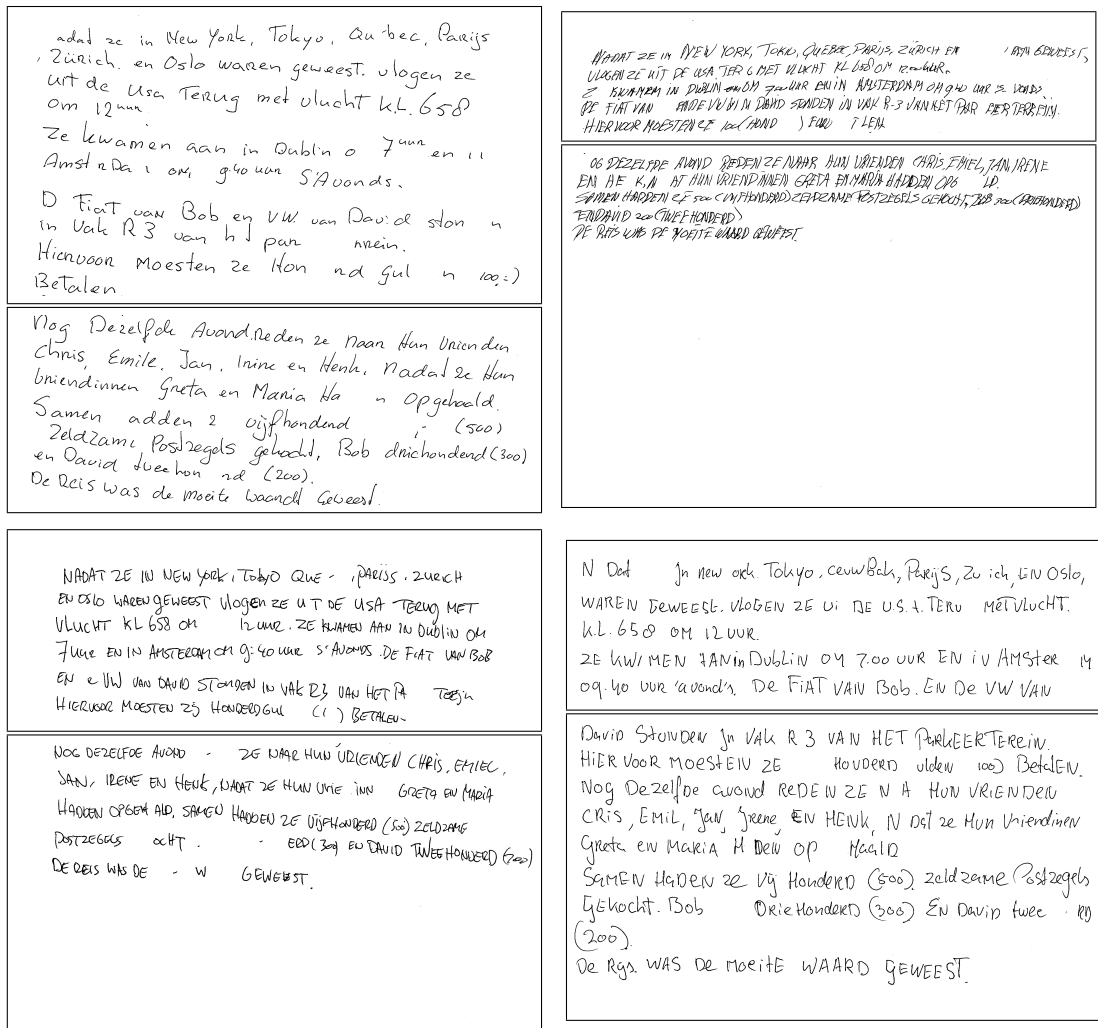 adat ze in New York, Tokyo, Qu bec, Parijs
, Zürich. en Oslo waren geweest. vlogen ze
uit de Usa Terug met vlucht K.L. 658
om 12 uur
Ze kwamen aan in Dublin o 7 uur en
Amst rDa om 9:40 uur S'Avonds.
D Fiat van Bob en VW van David ston n
in Vak R 3 van h t par rrein.
Hiervoor Moesten ze Hon rd gul n 100,=)
Betalen
Nog Dezelfde Avond Reden ze naar Hun Vrienden
Chris, Emile, Jan, Irine en Henk, Nadat ze Hun
Vriendinnen Greta en Maria Ha n Opgehaald.
Samen adden z vijfhonderd (500)
Zeldzame Postzegels gekocht, Bob driehonderd (300)
en David tweehon rd (200).
De Reis was de moeite waardt Geweest.
NADAT ZE IN NEW YORK, TOKIO, QUEBEC, PARIJS, ZÜRICH EN WAREN GEWEEST,
VLOGEN ZE UIT DE USA TER G MET VLUCHT KL 658 OM 12.00 UUR.
Z KWAMEN IN DUBLIN OM 7.00 UUR EN IN AMSTERDAM OM 9.40 UUR 'S AVONDS.
DE FIAT VAN EN DE VW VAN DAVID STONDEN IN VAK R-3 VAN HET PAR EERTERREIN.
HIERVOOR MOESTEN ZE 100 (HOND ) LEN.
OG DEZELFDE AVOND REDEN ZE NAAR HUN VRIENDEN CHRIS, EMIEL, JAN, IRENE
EN HE K, N AT HUN VRIENDINNEN GRETA EN MARIA HADDEN OPG LD.
SAMEN HADDEN ZE 500 (VIJFHONDERD) ZELDZAME POSTZEGELS GEKOCHT, BOB 300 (DRIEHONDERD)
EN DAVID 200 (TWEEHONDERD)
DE REIS WAS DE MOEITE WAARD GEWEEST.
NADAT ZE IN NEW YORK, TOKYO QUE - , PARIJS. ZURICH
EN OSLO WAREN GEWEEST VLOGEN ZE U T DE USA TERUG MET
VLUCHT KL 658 OM 12 UUR. ZE KWAMEN AAN IN DUBLIN OM
7 UUR EN IN AMSTERDAM OM 9:40 UUR S'AVONDS. DE FIAT VAN BOB
EN e VW VAN DAVID STONDEN IN VAK R3 VAN HET PA
HIERVOOR MOESTEN ZIJ HONDERD GUL ( ) BETALEN-
NOG DEZELFDE AVOND - ZE NAAR HUN VRIENDEN CHRIS, EMIEL,
JAN, IRENE EN HENK, NADAT ZE HUN VRIE INN GRETA EN MARIA
HADDEN OPGEH ALD, SAMEN HADDEN ZE VIJFHONDERD (500) ZELDZAME
POSTZEGELS OCHT . - ERD (300) EN DAVID TWEEHONDERD (200)
DE REIS WAS DE - W GEWEEST.
N Dat In new ork. Tokyo, ceuwBak, Parijs, Zu ich, EN OSlo,
WAREN GEWEEST. VLOGEN ZE Ui DE U.S.A. TERU MET VLUCHT.
K.L. 658 OM 12 UUR.
ZE KWAMEN AAN in Dublin OM 7.00 UUR EN iN AMSTER M
09.40 UUR 'avond's. DE FiAT VAN Bob. EN De VW VAN
David STONDEN In VAK R 3 VAN HET PARKEERTEREIN.
HiER VOOR MOESTEN ZE HONDERD ulden 100) BetALEN.
NOG DEZelfDe avond REDEN ZE N A HUN VRiENDEN
CRIS, EMIL, Jan, Irene, EN HENK, N DAT ze HUN Vriendinen
Greta en MARIA H DEN OP HAALD
SAMEN HADEN ze Vijf HONDERD (500). zeldzame Postzegels
GEKOCHT. Bob DRIEHONDERD (300) EN DaviD twee RD
(200).
De Rijs. WAS De MoEitE WAARD GEWEEST.